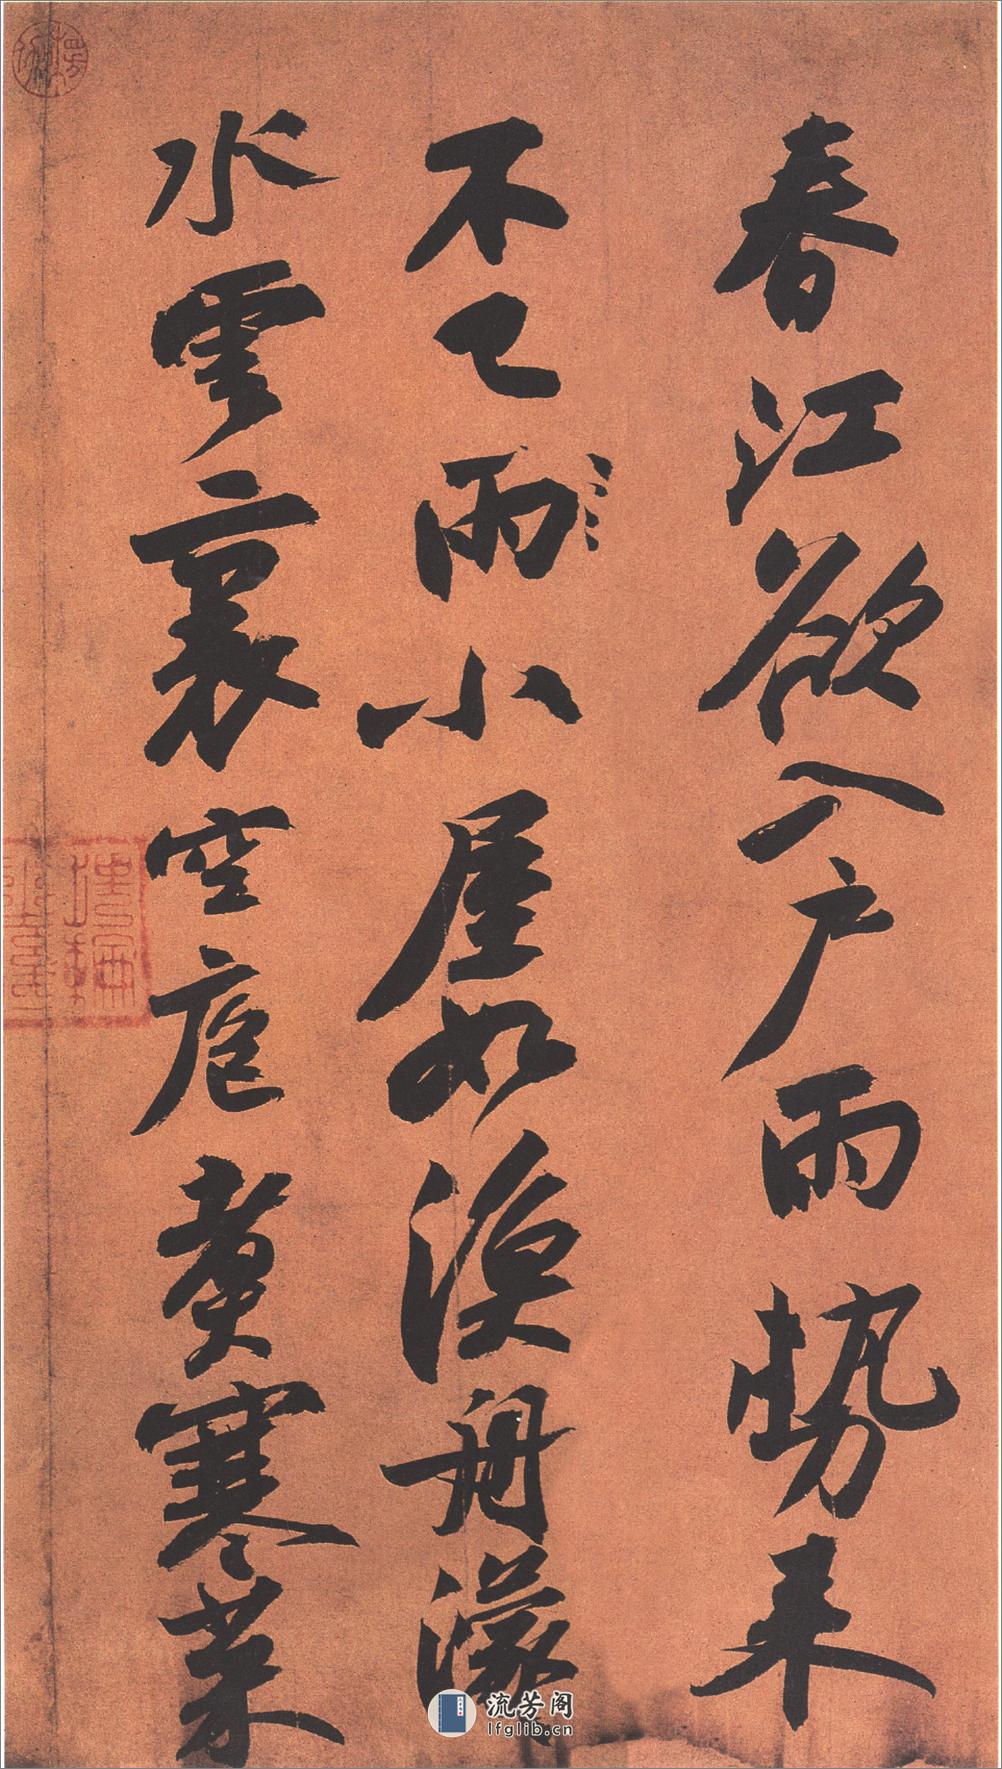 春江欲入户雨勢來
不已雨小屋如漁舟濛〻
水雲裏空庖煮寒菜
流芳阁
lfglib.cn